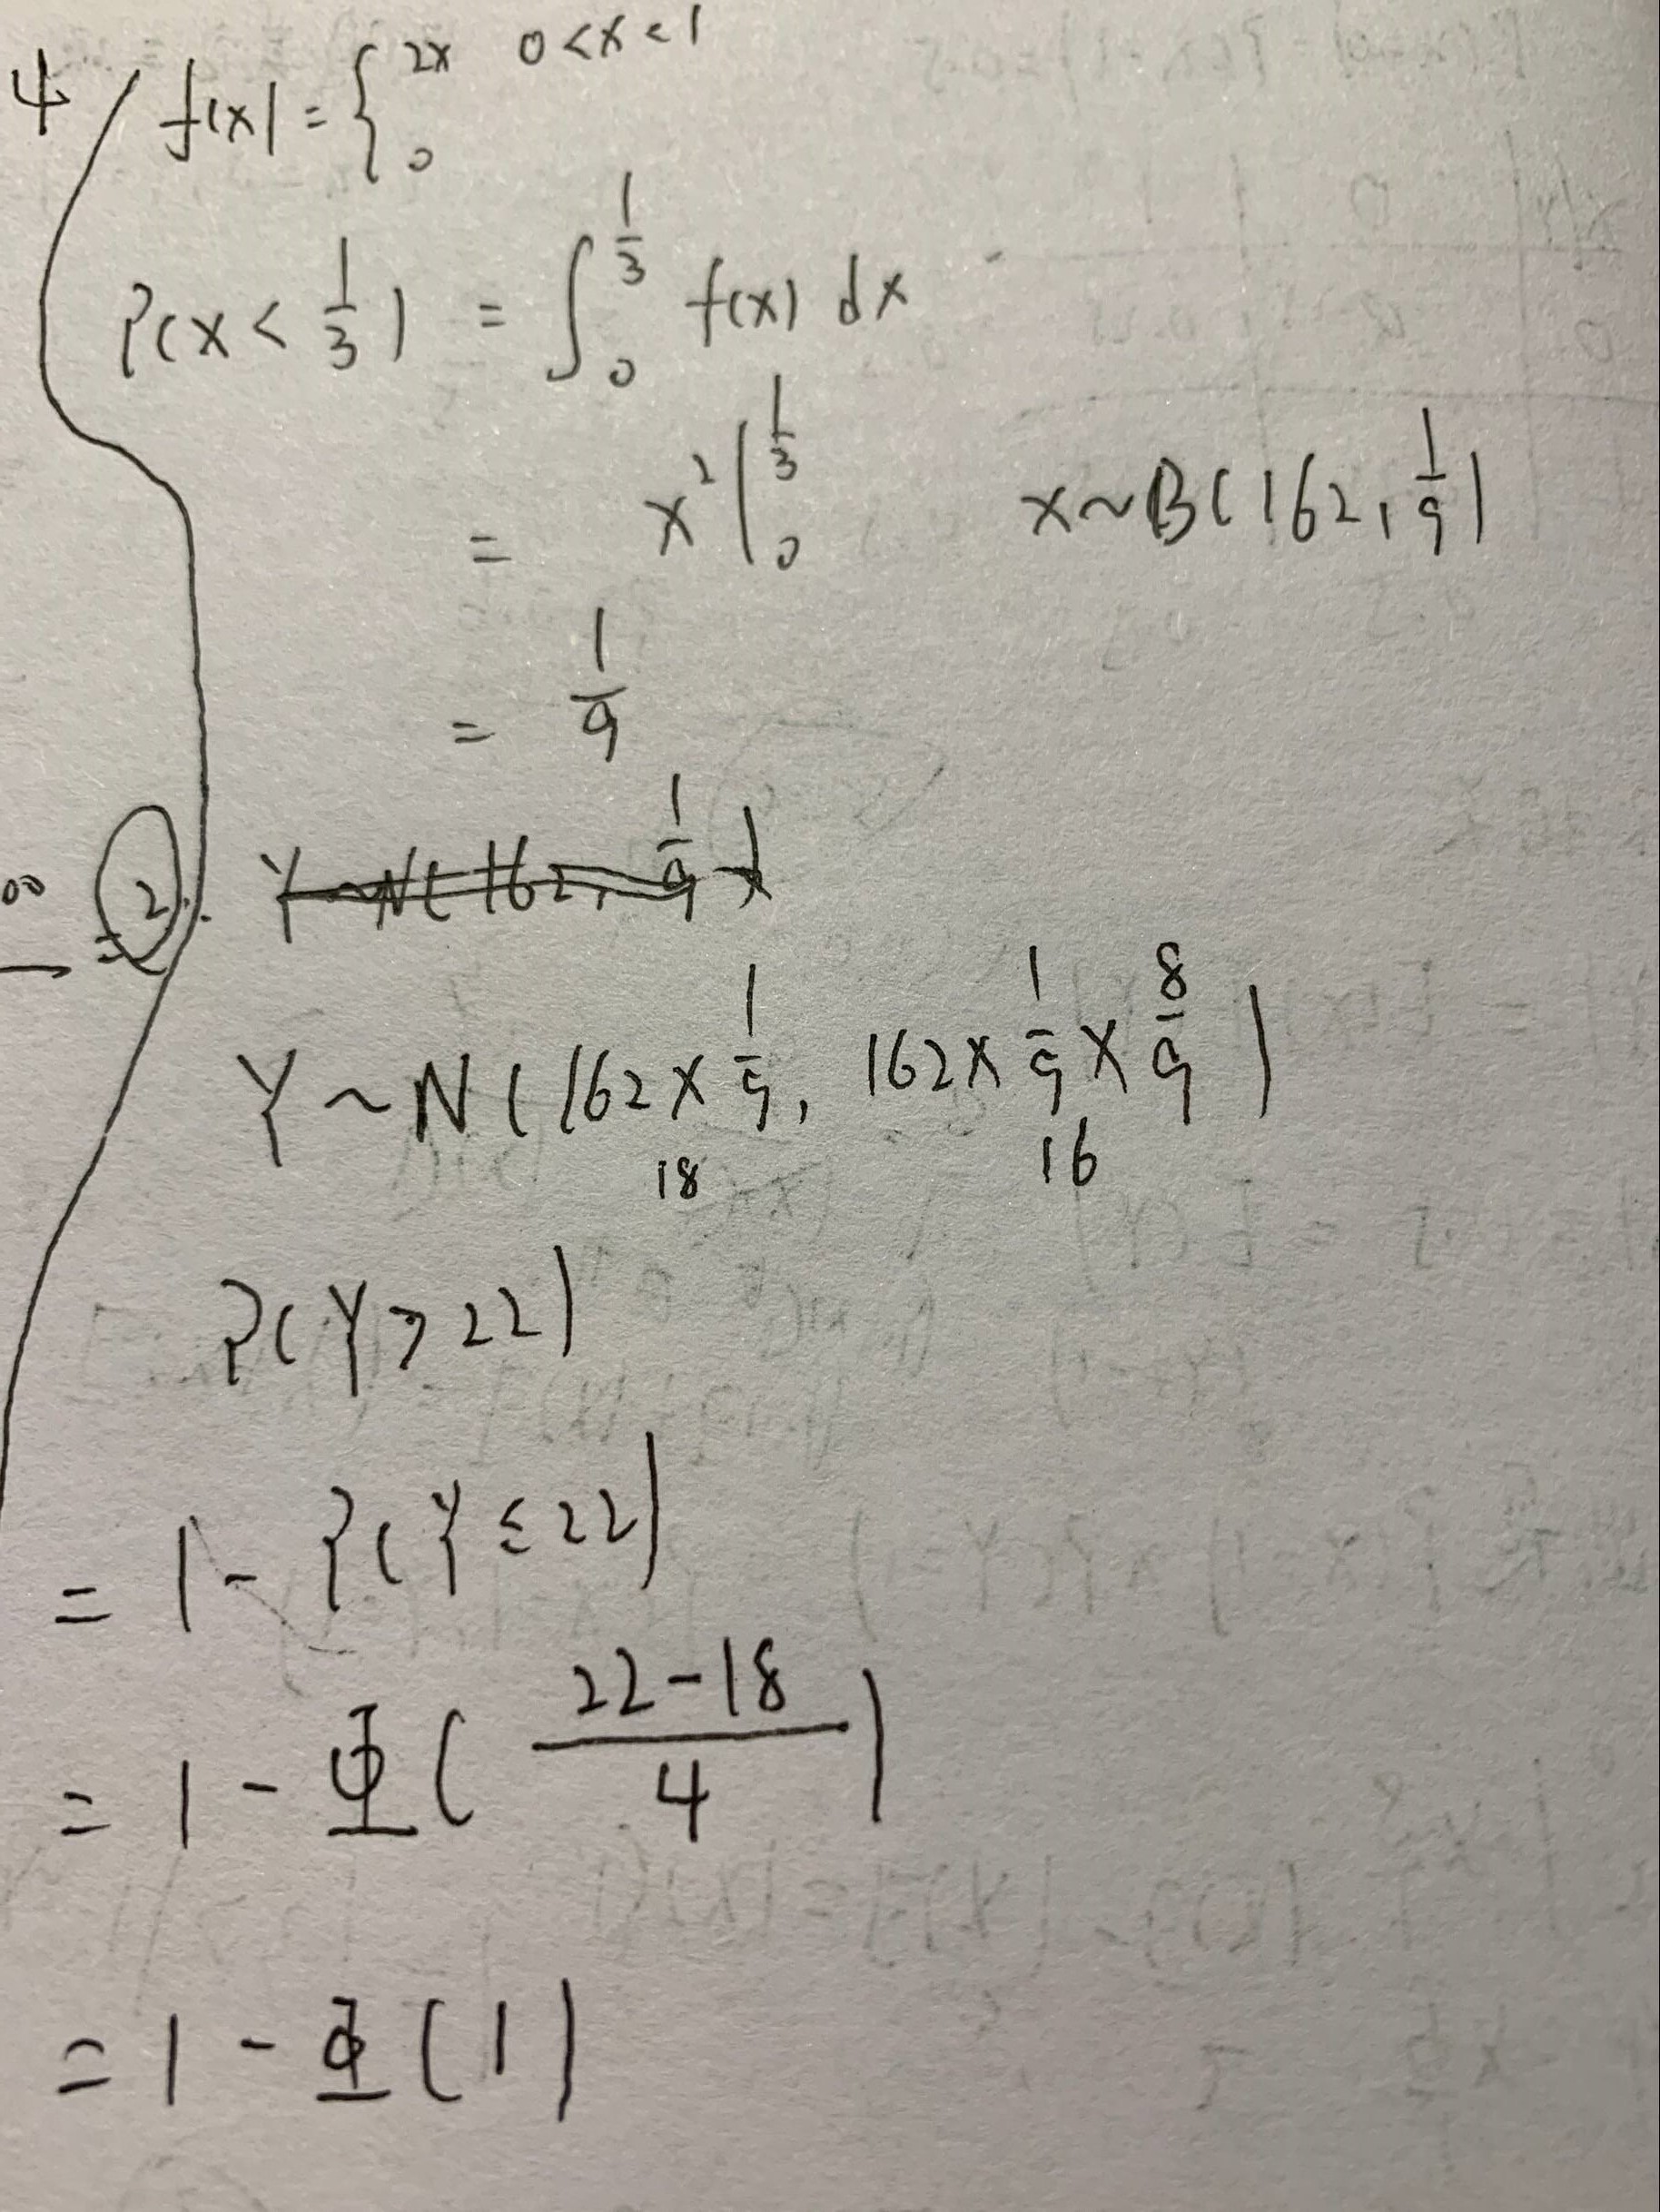 4 f(x) = { 2x 0<x<1
0
P(x < 1/3) = ∫_0^{1/3} f(x) dx
= x² |_0^{1/3} x~B(162, 1/9)
= 1/9
∞ = 2. Y~N(162, 1/9)
Y ~ N(162 × 1/9, 162 × 1/9 × 8/9)
18 16
P(Y > 22)
= 1 - P(Y ≤ 22)
= 1 - Φ( (22-18)/4 )
= 1 - Φ(1)